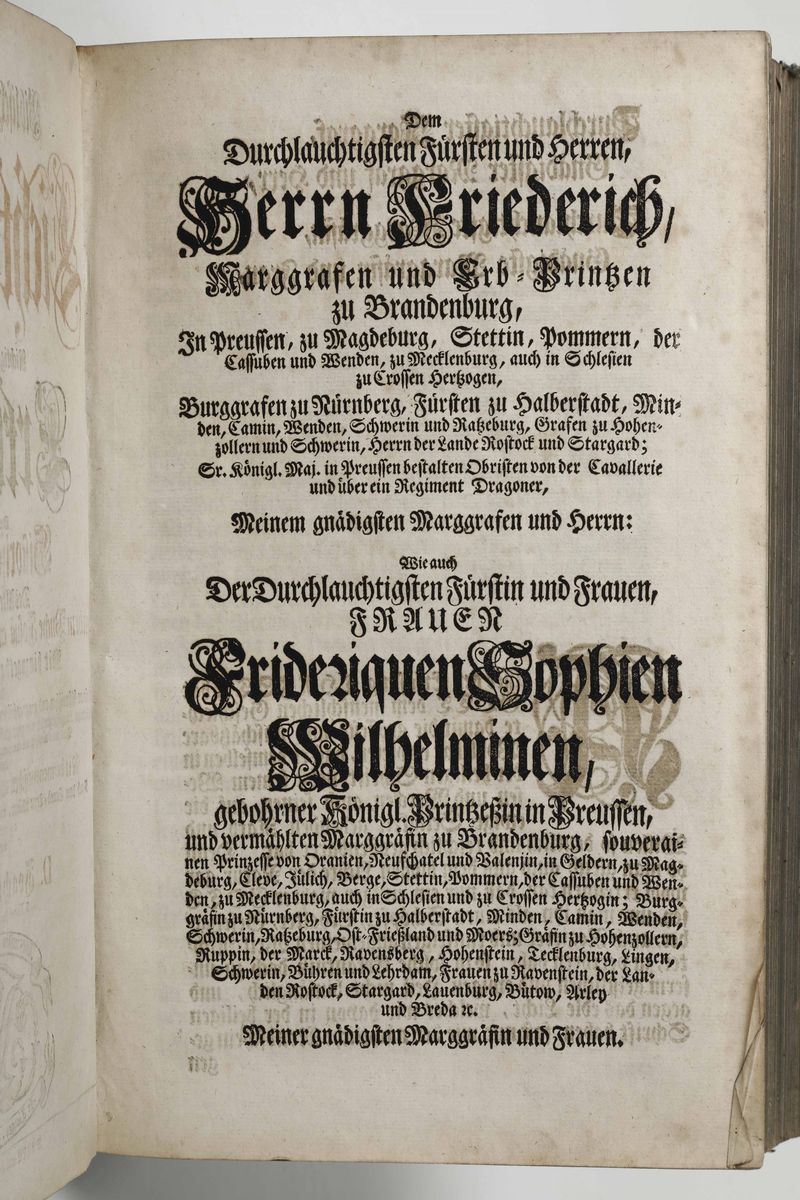 Dem
Durchlauchtigsten Fürsten und Herren,
Herrn Friederich,
Marggrafen und Erb-Printzen
zu Brandenburg,
In Preussen, zu Magdeburg, Stettin, Pommern, der
Cassuben und Wenden, zu Mecklenburg, auch in Schlesien
zu Crossen Hertzogen,
Burggrafen zu Nürnberg, Fürsten zu Halberstadt, Min-
den, Camin, Wenden, Schwerin und Ratzeburg, Grafen zu Hohen-
zollern und Schwerin, Herrn der Lande Rostock und Stargard;
Sr. Königl. Maj. in Preussen bestalten Obristen von der Cavallerie
und über ein Regiment Dragoner,
Meinem gnädigsten Marggrafen und Herrn:
Wie auch
Der Durchlauchtigsten Fürstin und Frauen,
FRAUEN
Frideriquen Sophien
Wilhelminen,
gebohrner Königl. Printzeßin in Preussen,
und vermählten Marggräfin zu Brandenburg, souverai-
nen Prinzesse von Oranien, Neufchatel und Valenjin, in Geldern, zu Mag-
deburg, Cleve, Jülich, Berge, Stettin, Pommern, der Cassuben und Wen-
den, zu Mecklenburg, auch in Schlesien und zu Crossen Hertzogin; Burg-
gräfin zu Nürnberg, Fürstin zu Halberstadt, Minden, Camin, Wenden,
Schwerin, Ratzeburg, Ost-Frießland und Moers; Gräfin zu Hohenzollern,
Ruppin, der Marck, Ravensberg, Hohenstein, Tecklenburg, Lingen,
Schwerin, Bühren und Lehrdam, Frauen zu Ravenstein, der Lan-
den Rostock, Stargard, Lauenburg, Bütow, Arley
und Breda ꝛc.
Meiner gnädigsten Marggräfin und Frauen.